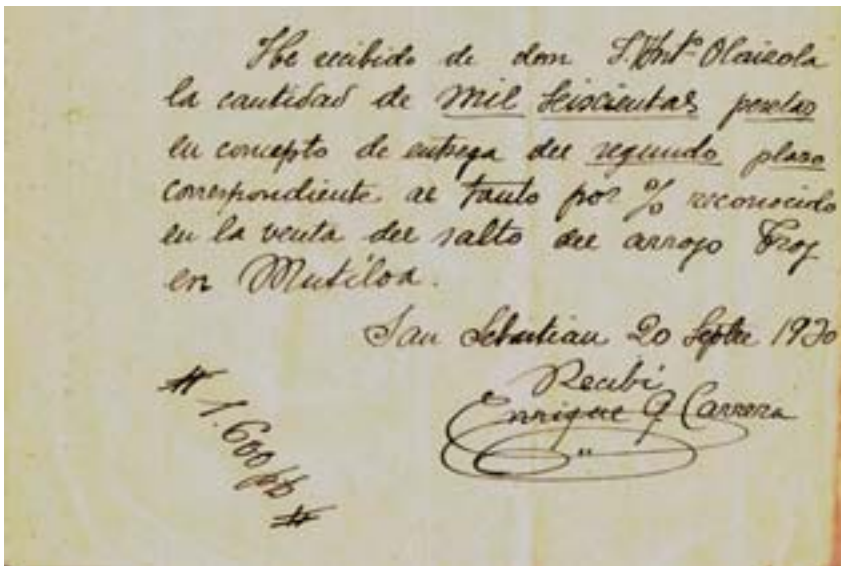 He recibido de don J. Antº Olaizola
la cantidad de mil seiscientas pesetas
en concepto de entrega del segundo plazo
correspondiente al tanto por % reconocido
en la venta del salto del arroyo Troy
en Mutiloa.
San Sebastian 20 Sepbre 1920
Recibí
Enrique G Carrera
# 1.600 pts #